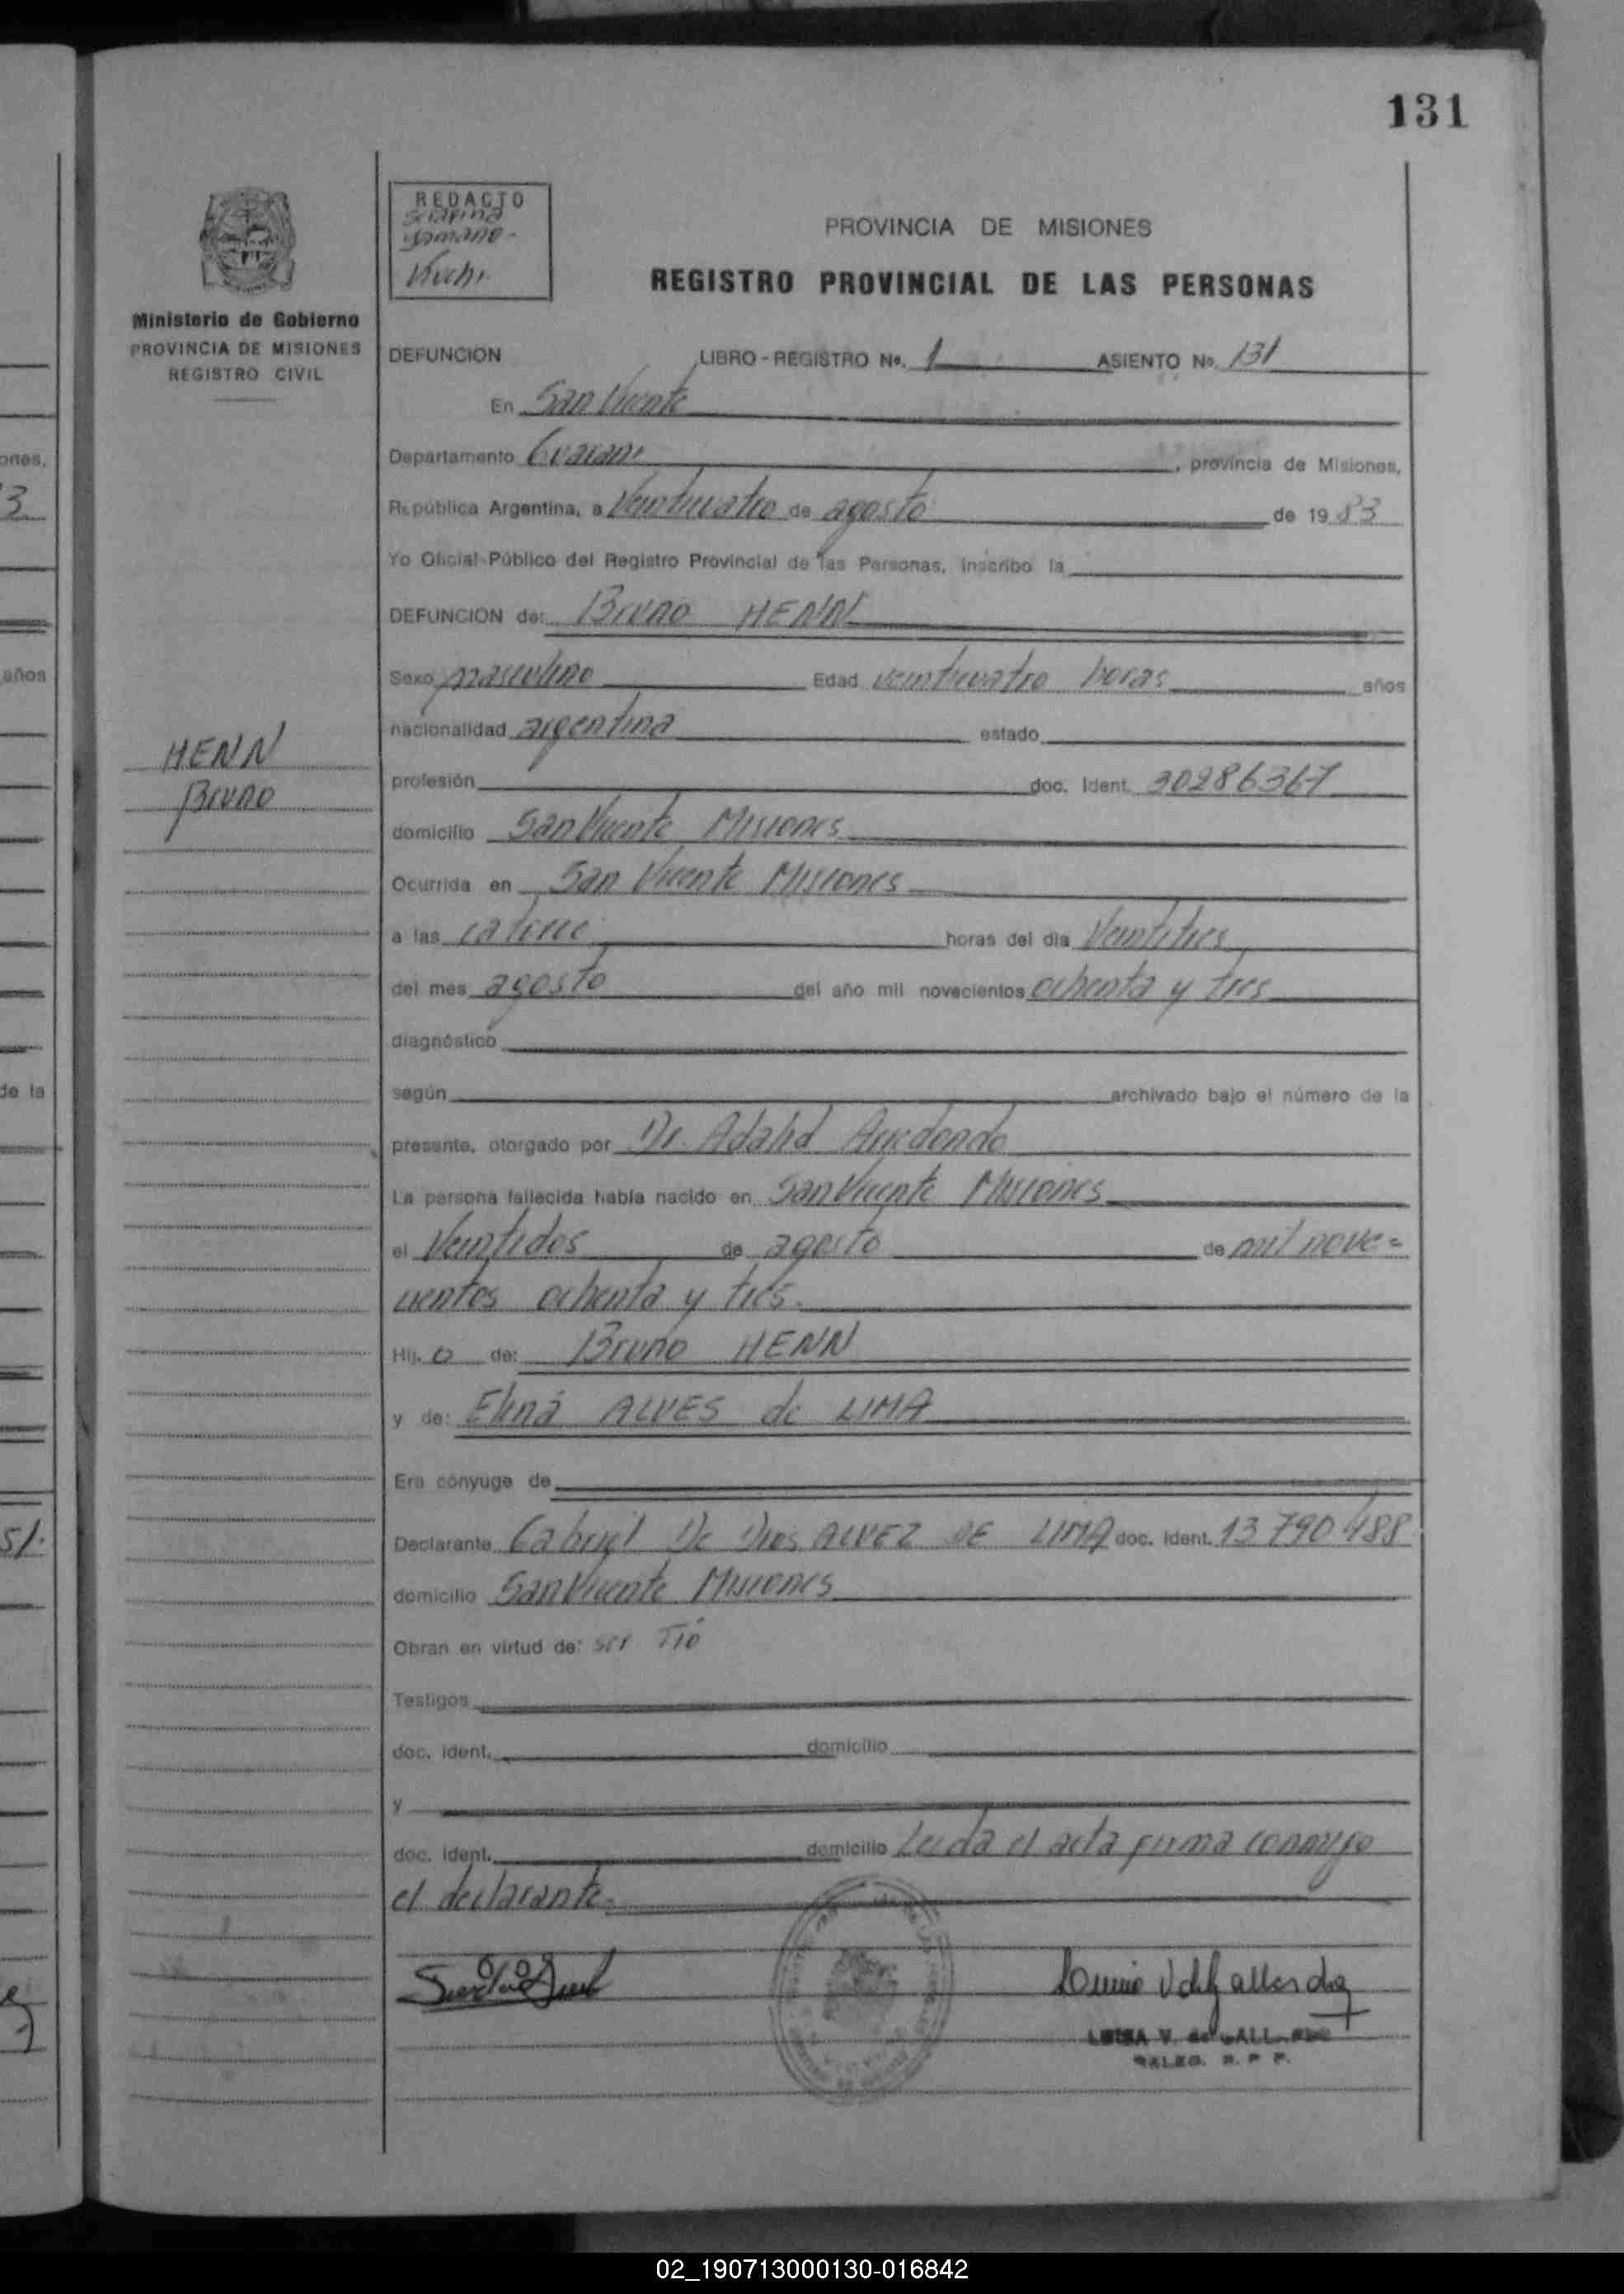 131
REDACTO
Ministerio de Gobierno
PROVINCIA DE MISIONES
REGISTRO CIVIL
PROVINCIA DE MISIONES
REGISTRO PROVINCIAL DE LAS PERSONAS
DEFUNCION LIBRO - REGISTRO No. 1 ASIENTO No. 131
En San Vicente
Departamento Guarani, provincia de Misiones,
República Argentina, a Veinticuatro de agosto de 19 83
Yo Oficial Público del Registro Provincial de las Personas, inscribo la
DEFUNCION de: Bruno HENN
Sexo masculino Edad veinticuatro horas años
nacionalidad argentina estado
profesión doc. Ident. 30286367
domicilio San Vicente Misiones
Ocurrida en San Vicente Misiones
a las catorce horas del día Veintitres
del mes agosto del año mil novecientos ochenta y tres
diagnóstico
según archivado bajo el número de la
presente, otorgado por Dr. Adalid Arredondo
La persona fallecida había nacido en San Vicente Misiones
el Veintidos de agosto de mil nove=
cientos ochenta y tres.
Hij o de: Bruno HENN
y de: Elina ALVES de LIMA
Era cónyuge de
Declarante Gabriel De Dios ALVEZ DE LIMA doc. Ident. 13 790 488
domicilio San Vicente Misiones
Obran en virtud de: ser Tio
Testigos
doc. ident. domicilio
y
doc. ident. domicilio Leida el acta firma conmigo
el declarante.
HENN
Bruno
ones,
3
años
de la
51.
02_190713000130-016842